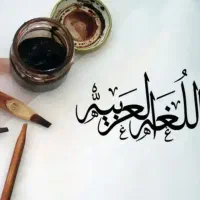 اللُغة العربيه